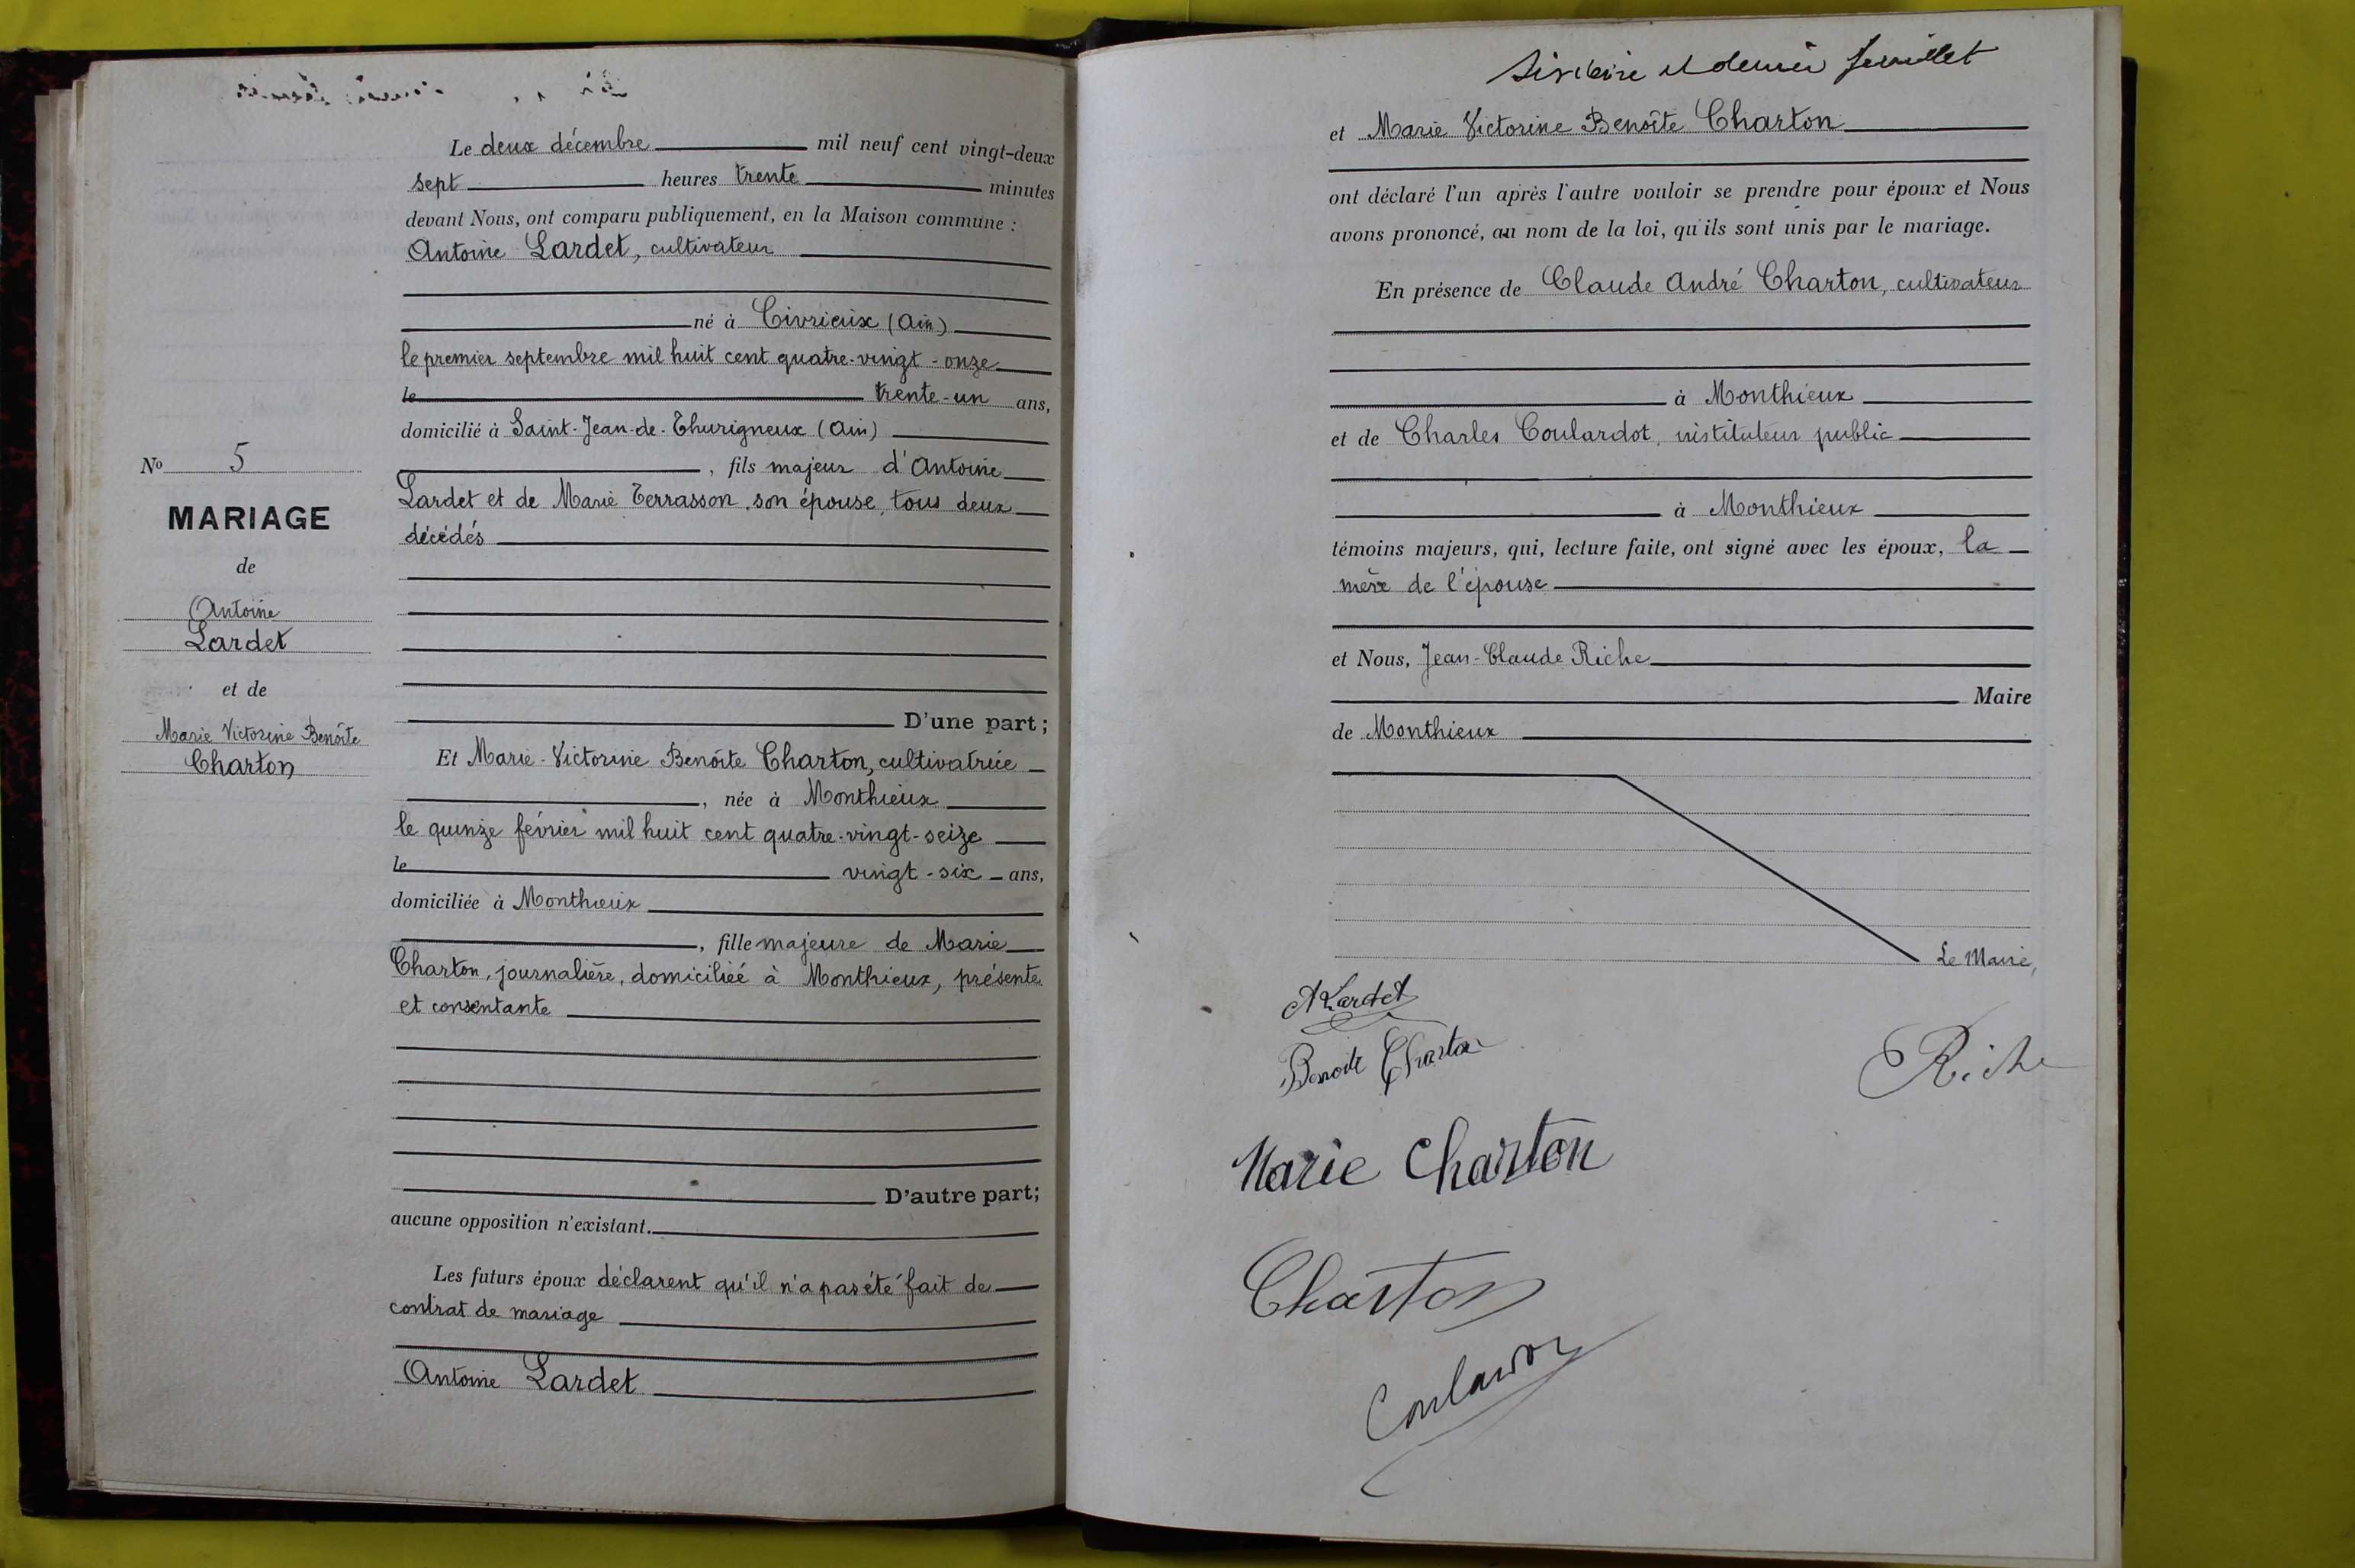 Le deux décembre mil neuf cent vingt-deux
sept heures trente minutes
devant Nous, ont comparu publiquement, en la Maison commune :
Antoine Lardet, cultivateur
né à Civrieux (Ain)
le premier septembre mil huit cent quatre-vingt-onze
le trente-un ans,
domicilié à Saint-Jean-de-Thurigneux (Ain)
, fils majeur d'Antoine
Lardet et de Marie Terrasson, son épouse, tous deux
décédés
D'une part ;
Et Marie-Victorine Benoîte Charton, cultivatrice
, née à Monthieux
le quinze février mil huit cent quatre-vingt-seize
le vingt-six ans,
domiciliée à Monthieux
, fille majeure de Marie
Charton, journalière, domiciliée à Monthieux, présente
et consentante
D'autre part;
aucune opposition n'existant.
Les futurs époux déclarent qu'il n'a pas été fait de
contrat de mariage
Antoine Lardet
No 5
MARIAGE
de
Antoine
Lardet
et de
Marie Victorine Benoîte
Charton
et dernier feuillet
et Marie Victorine Benoîte Charton
ont déclaré l'un après l'autre vouloir se prendre pour époux et Nous
avons prononcé, au nom de la loi, qu'ils sont unis par le mariage.
En présence de Claude André Charton, cultivateur
à Monthieux
et de Charles Coulardot, instituteur public
à Monthieux
témoins majeurs, qui, lecture faite, ont signé avec les époux, la
mère de l'épouse
et Nous, Jean-Claude Riche
Maire
de Monthieux
Le Maire,
A Lardet
Benoite Charton
Riche
Marie Charton
Charton